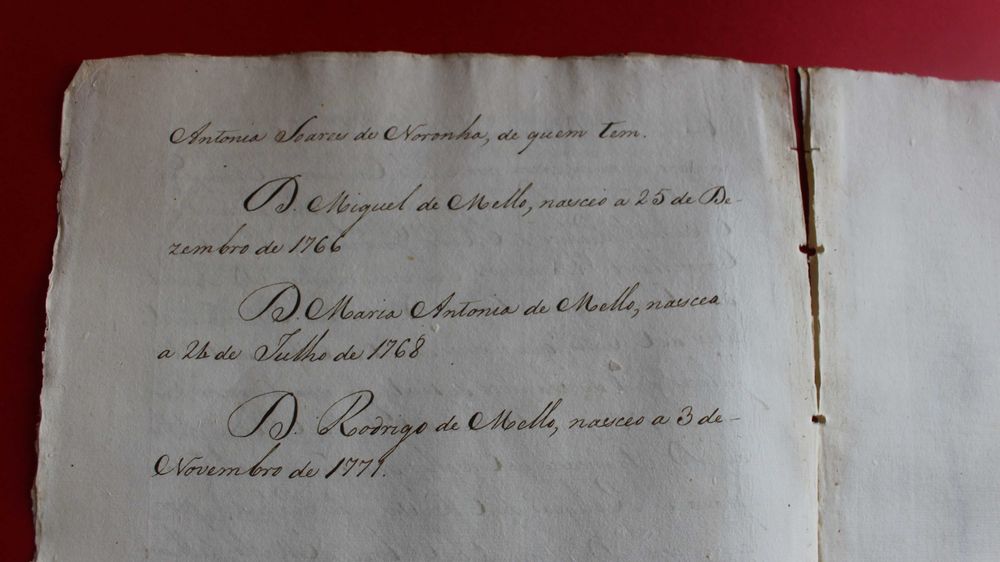 Antonia Soares de Noronha, de quem tem.
D. Miguel de Mello, nasceo a 25 de De-
zembro de 1766
D. Maria Antonia de Mello, nasceo
a 24 de Julho de 1768
D. Rodrigo de Mello, nasceo a 3 de-
Novembro de 1771.